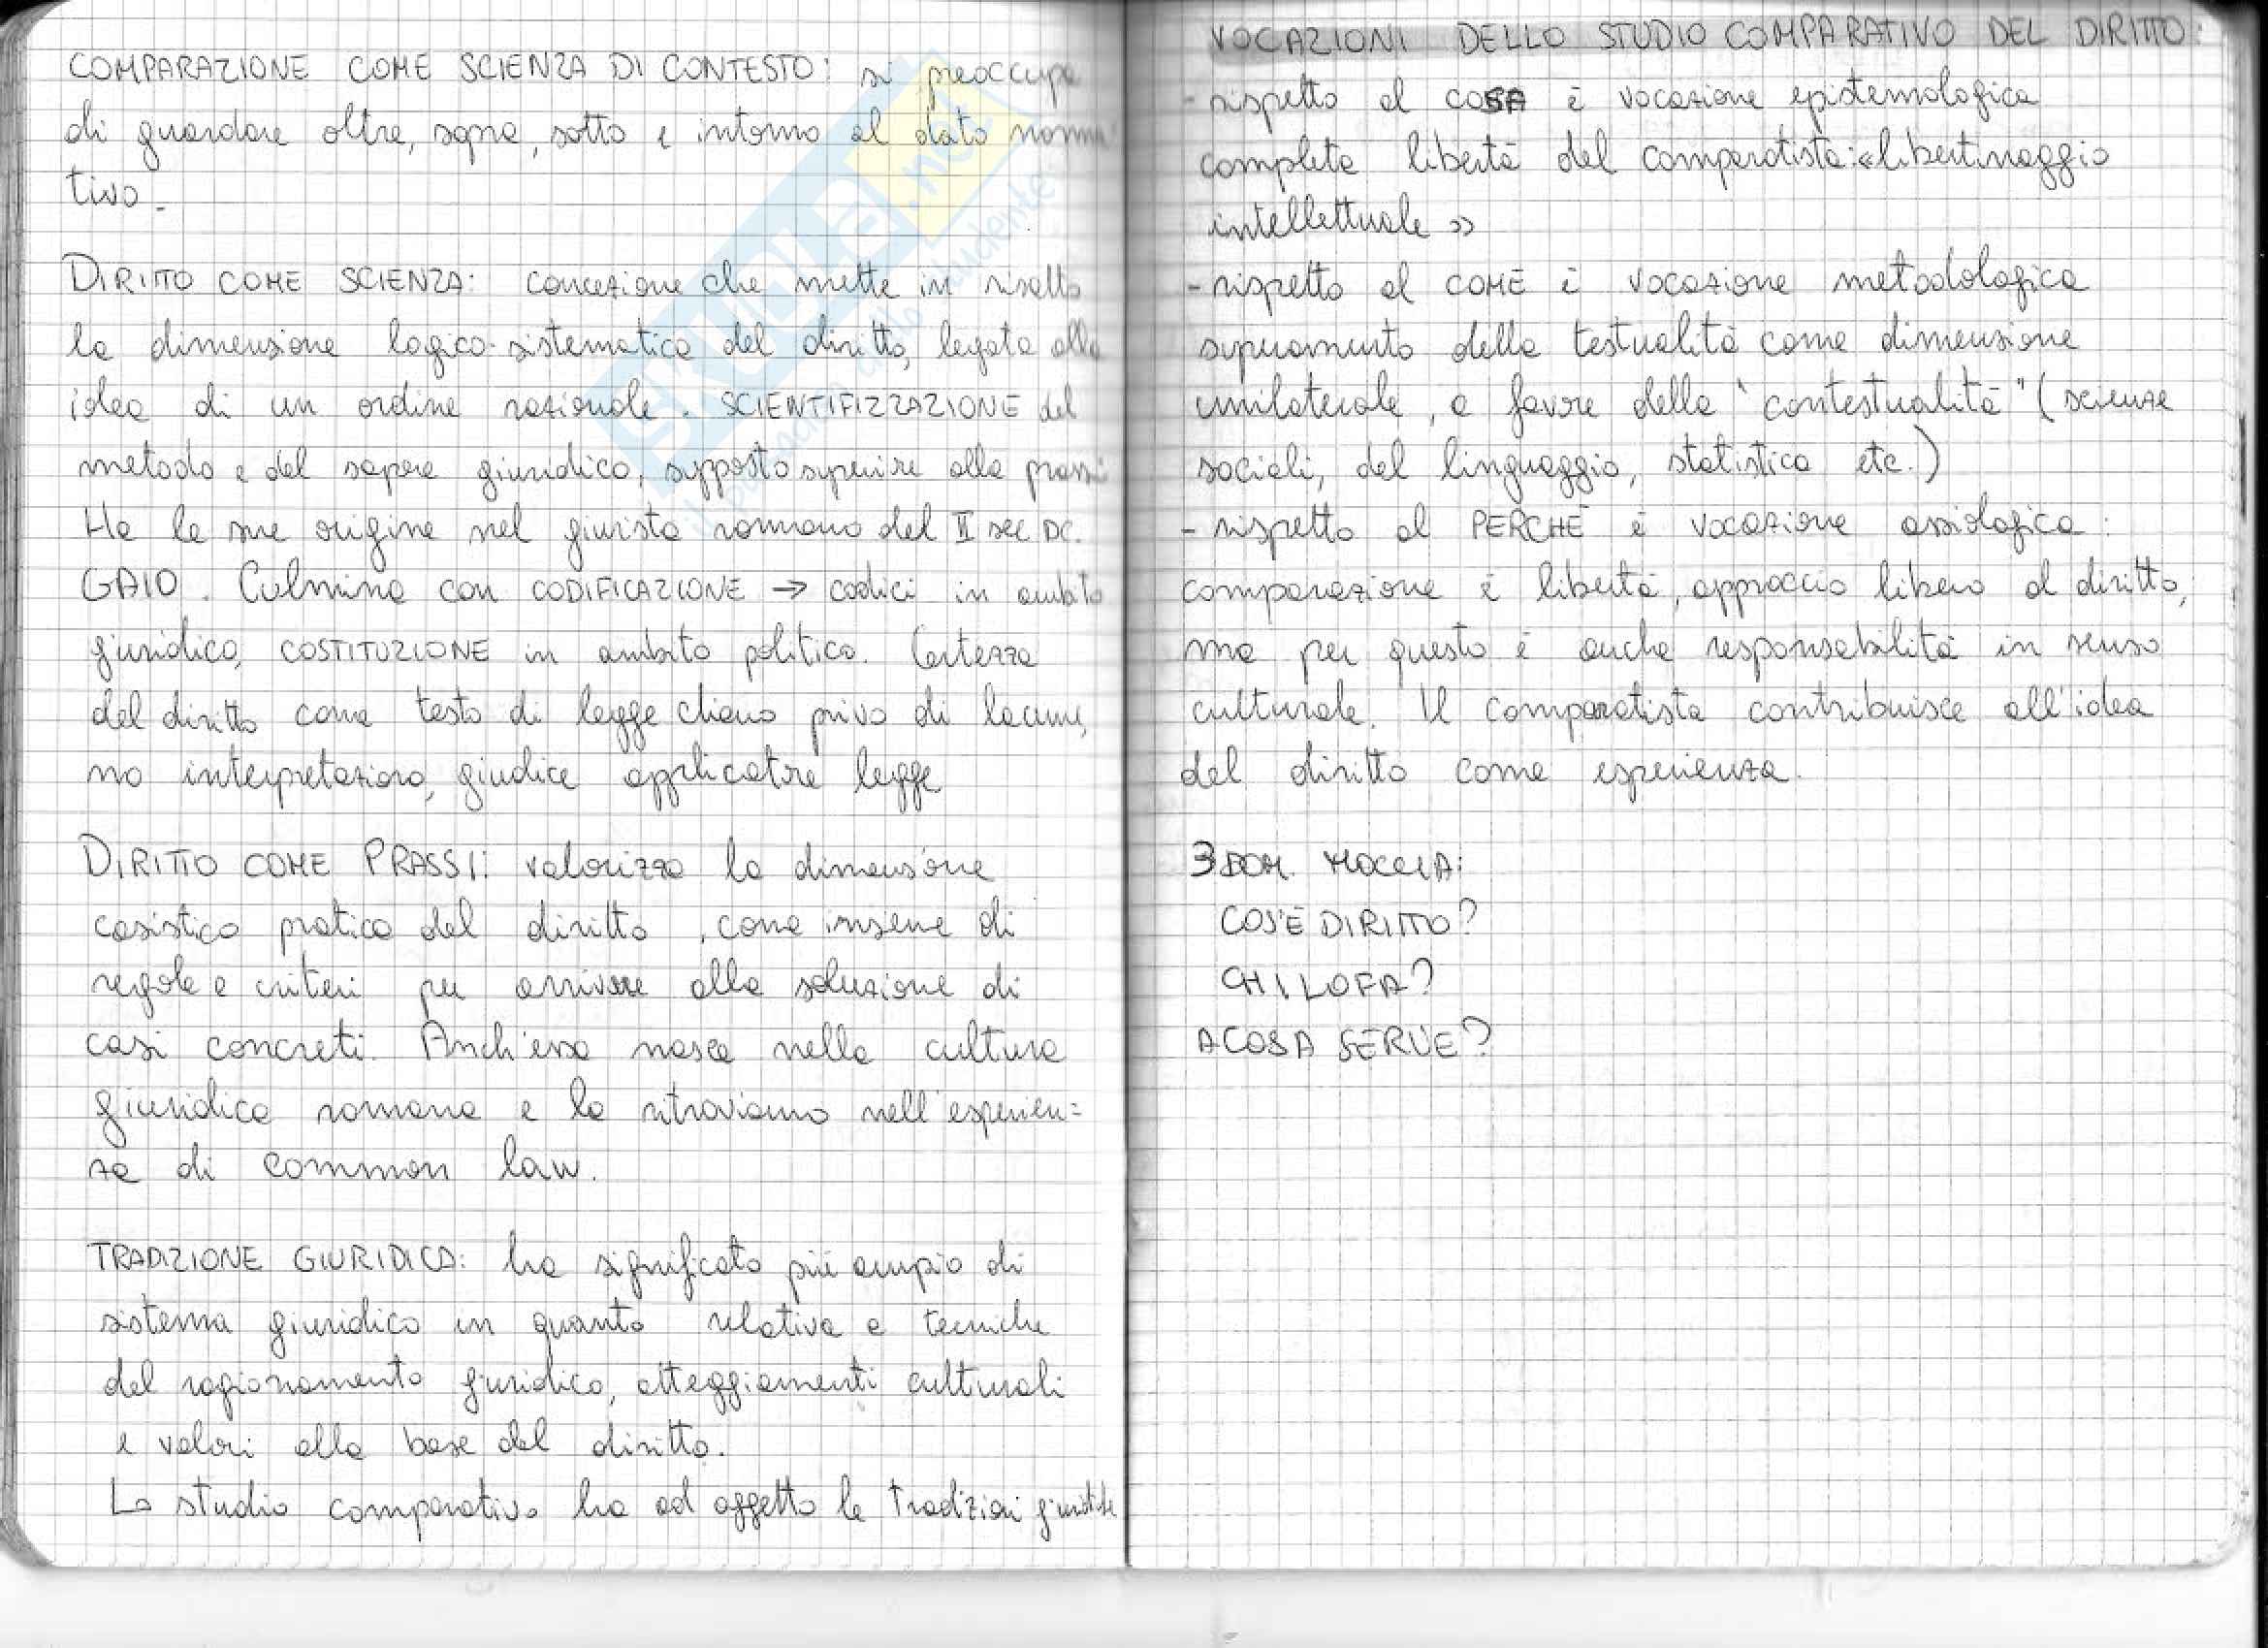 COMPARAZIONE COME SCIENZA DI CONTESTO: si preoccupa
di guardare oltre, sopra, sotto e intorno al dato norma
tivo.
DIRITTO COME SCIENZA: concezione che mette in risalto
la dimensione logico-sistematica del diritto, legata alla
idea di un ordine razionale. SCIENTIFIZZAZIONE del
metodo e del sapere giuridico, supposto superiore alla prassi
Ha le sue origine nel giurista romano del II sec DC.
GAIO. Culmina con CODIFICAZIONE → codici in ambito
giuridico, COSTITUZIONE in ambito politico. Certezza
del diritto come testo di legge chiaro privo di lacune,
no interpretazioni, giudice applicatore legge
DIRITTO COME PRASSI: valorizza la dimensione
casistico pratica del diritto, come insieme di
regole e criteri per arrivare alla soluzione di
casi concreti. Anch'essa nasce nella cultura
giuridica romana e la ritroviamo nell'esperien=
za di common law.
TRADIZIONE GIURIDICA: ha significato più ampio di
sistema giuridico in quanto relativa a tecniche
del ragionamento giuridico, atteggiamenti culturali
e valori alla base del diritto.
Lo studio comparativo ha ad oggetto le tradizioni giuridiche
VOCAZIONI DELLO STUDIO COMPARATIVO DEL DIRITTO:
- rispetto al COSA è vocazione epistemologica
completa libertà del comparatista: «libertinaggio
intellettuale»
- rispetto al COME è vocazione metodologica
superamento della testualità come dimensione
unilaterale, a favore della "contestualità" (scienze
sociali, del linguaggio, statistica etc.)
- rispetto al PERCHÉ è vocazione assiologica:
comparazione è libertà, approccio libero al diritto,
ma per questo è anche responsabilità in senso
culturale. Il comparatista contribuisce all'idea
del diritto come esperienza.
3 DOM. MOCCIA:
COS'È DIRITTO?
CHI LO FA?
A COSA SERVE?